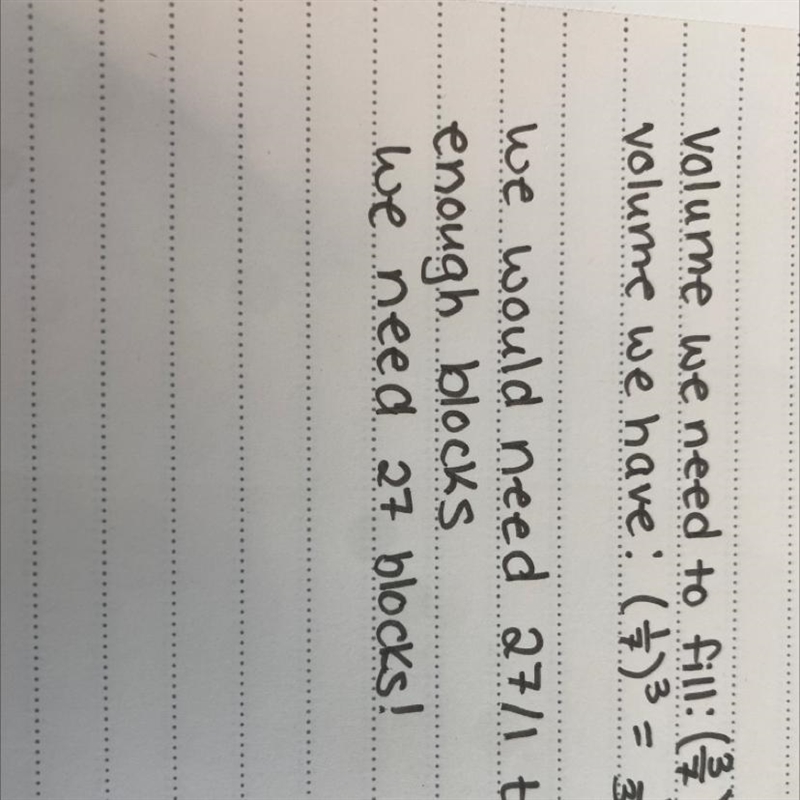 Volume we need to fill: (3/7
volume we have: (1/7)³ =
we would need 27/1 t
enough blocks
we need 27 blocks!